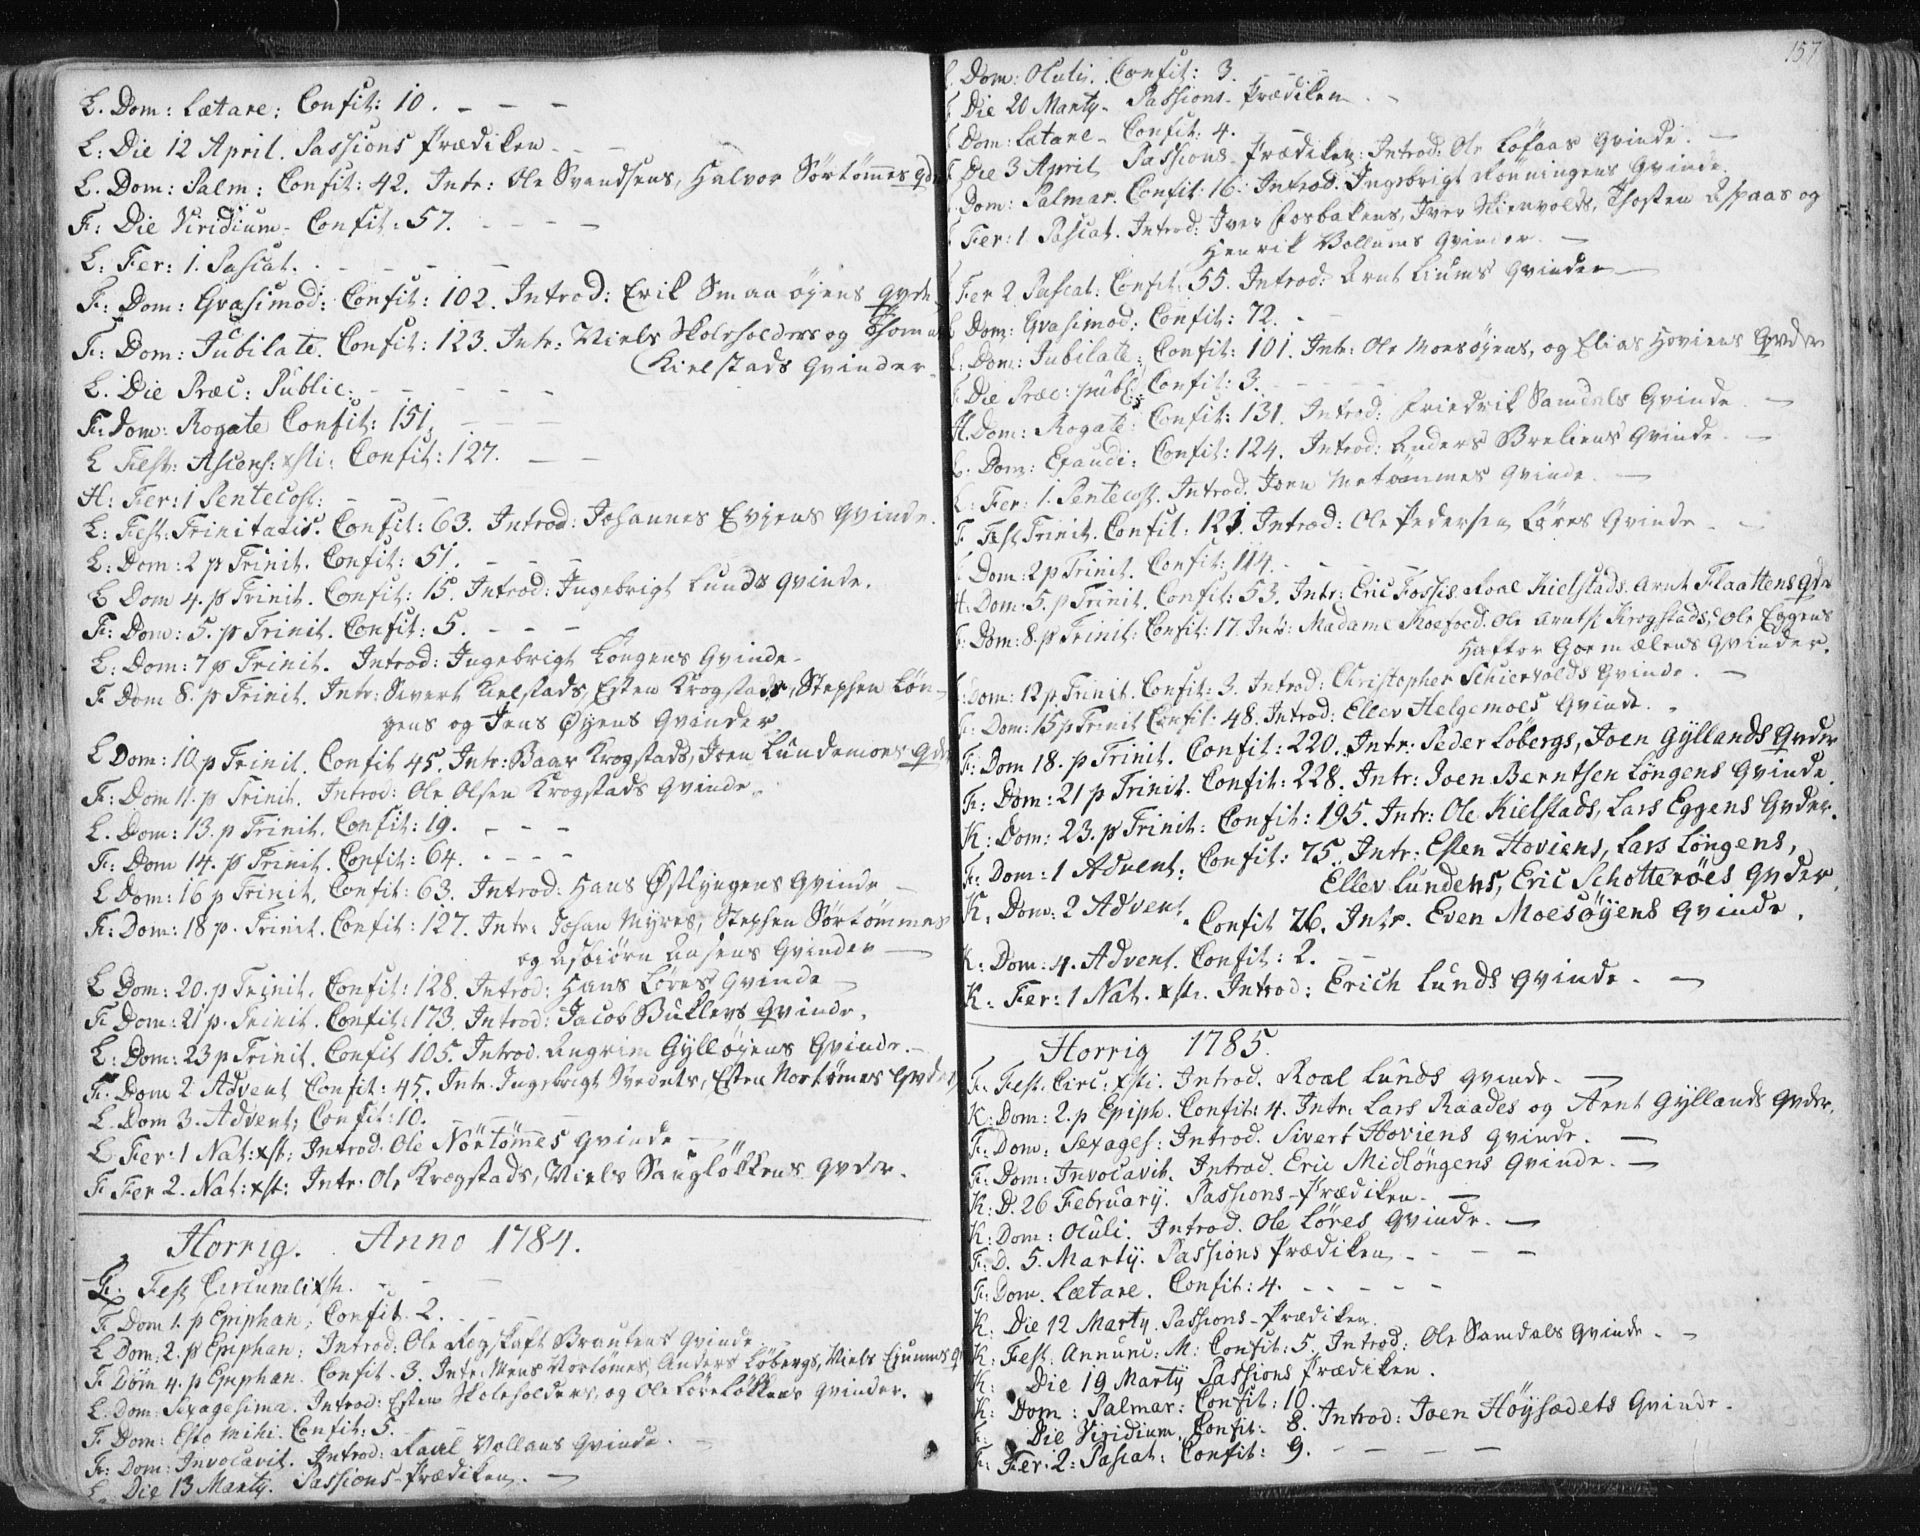 L. Dom: Lætare: Confit: 10. - - -
L: Die 12 April. Passions Prædiken - - -
L. Dom: Palm: Confit: 42. Intr: Ole Svendsens, Halvor Sörtömmes Qvdr
F: Die Viridium. Confit: 57. - - - -
L: Fer: 1. Pascat. - - - - -
F: Dom: Qvasimod: Confit: 102. Introd: Erik Smaaöyens Qvde
F: Dom: Jubilate. Confit: 123. Intr: Niels Skoleholders og Thomas
Kielstads Qvinder.
L. Die Præc: Public: - - - - -
F: Dom: Rogate Confit: 151. - - -
L Fest: Ascens: xsti: Confit: 127. - -
H: Fer: 1 Pentecost: - - - -
L: Fest: Trinitatis. Confit: 63. Introd: Johannes Evjens Qvinde.
L: Dom: 2 p Trinit. Confit: 51. - - -
L Dom 4. p Trinit. Confit: 15. Introd: Ingebrigt Lunds Qvinde.
F: Dom: 5. p Trinit. Confit: 5. - - -
L: Dom: 7 p Trinit. Introd: Ingebrigt Löngens Qvinde.
F Dom 8. p Trinit. Intr: Sivert Kielstads, Esten Krogstads, Stephen Lön-
gens og Jens Øyens Qvinder.
L Dom: 10 p Trinit. Confit 45. Intr: Baar Krogstads, Joen Lundemoes Qdr
F: Dom 11. p Trinit. Introd: Ole Olsen Krogstads Qvinde.
L. Dom: 13. p Trinit. Confit: 19. - - -
F: Dom 14. p Trinit. Confit: 64. - - - -
L Dom: 16 p Trinit. Confit: 63. Introd: Hans Østlyngens Qvinde -
F: Dom: 18 p. Trinit. Confit: 127. Intr: Johan Myres, Stephen Sörtömmes
og Asbiörn Aasens Qvinder -
L Dom: 20. p Trinit. Confit: 128. Introd: Hans Löres Qvinde -
F Dom: 21 p. Trinit. Confit: 173. Introd: Jacob Buklers Qvinde.
L: Dom: 23 p Trinit. Confit 105. Introd. Angrim Gyllöyens Qvinde. -
F: Dom 2 Advent Confit: 45. Intr. Ingebrigt Svedets, Esten Nortömes Qvder
L. Dom 3. Advent; Confit: 10. - - -
L Fer: 1 Nat: xst: Introd. Ole Nörtömes Qvinde -
F Fer 2. Nat: xst: Intr: Ole Krogstads, Niels Saugløkkens Qvder.
Horrig. Anno 1784.
F: Fest Circumcis xsti. - - -
F Dom 1. p Epiphan; Confit. 2. - -
L Dom: 2. p Epiphan; Introd: Ole Rogskaft Brautens Qvinde.
F Dom 4. p Epiphan. Confit. 3. Intr: Mons Nortömes, Anders Löbergs, Niels Ejnums Q
L: Dom: Sexagesima. Introd: Esten Skoleholders, og Ole Löreløkkens Qvinder.
F Dom: Esto mihi. Confit: 5. -
F: Dom: Invocavit. Introd: Raael Vollans Qvinde. -
L. Die 13 Marty. Passions-Prædiken. -
157
L Dom: Oculi. Confit: 3. - -
Die 20 Marty. Passions-Prædiken - -
Dom: Lætare - Confit: 4. -
Die 3 April Passions-Prædiken: Introd: Ole Løkaas Qvinde. -
Dom: Palmar. Confit: 16. Introd. Ingebrigt Rönningens Qvinde.
Fer: 1 Pascat. Introd: Iver Fosbakens, Iver Skiervolds, Thosten Aspaas og
Henrik Vollums Qvinder. -
Fer 2. Pascat: Confit: 55. Introd: Arnt Liums Qvinder -
Dom: Qvasimod: Confit: 72. -
L: Dom: Jubilate: Confit: 101. Intr: Ole Moesøyens, og Elias Hoviens Qvder
Die Præc: publ: Confit: 3. - - - - -
H. Dom: Rogate: Confit: 131. Introd: Friedrik Samdals Qvinde. -
L. Dom: Exaudi: Confit: 124. Introd: Anders Breliens Qvinde. -
L: Fer: 1. Pentecost. Introd. Joen Metrömmes Qvinde. -
F Fest Trinit. Confit: 121. Introd: Ole Pedersen Löres Qvinde - -
Dom: 2 p Trinit. Confit: 114. - - - -
H: Dom: 5. p Trinit. Confit: 53. Intr: Eric Fossis, Roal Kielstads, Arnt Flaattens Qdr
F: Dom: 8. p Trinit: Confit: 17. Intr: Madame Koefoed, Ole Arnts. Krogstads, Ole Eggens
Haftor Goemælens Qvinder.
Dom: 12 p. Trinit. Confit: 3. Introd: Christopher Schiervolds Qvinde. -
F: Dom: 15 p Trinit Confit: 48. Introd: Ellev Helgemoes Qvinde. -
F: Dom 18. p Trinit. Confit: 220. Intr: Peder Löbergs, Joen Gyllands Qvder
F: Dom: 21 p Trinit. Confit: 228. Intr: Joen Berntsen Löngens Qvinde.
K: Dom: 23. p Trinit: Confit: 195. Intr: Ole Kielstads, Lars Eggens Qvder.
F: Dom: 1 Advent: Confit: 75. Intr: Esten Hoviens, Lars Löngens,
Ellev Lundens, Eric Schotterøes Qvder.
K. Dom: 2 Advent. Confit 26. Intr. Even Moesøyens Qvinde.
K: Dom: 4. Advent. Confit: 2. - -
K: Fer: 1 Nat. xsti. Introd: Erich Lunds Qvinde. -
Horrig 1785.
F: Fest. Circ: xsti. Introd. Roal Lunds Qvinde. -
K: Dom: 2. p Epiph. Confit: 4. Intr: Lars Raades og Arnt Gyllands Qvder.
F: Dom: Sexages: Introd. Sivert Hoviens Qvinde. -
F: Dom: Invocavit. Introd. Eric Midlöngens Qvinde. -
K: D. 26 February. Passions-Prædiken. -
K: Dom: Oculi. Introd. Ole Löres Qvinde. -
F: D. 5. Marty. Passions Prædiken. - - -
F: Dom. Lætare. Confit: 4. - - - - -
K: Die 12 Marty. Passions-Prædiken.
K: Fest. Annunc: M: Confit: 5. Introd: Ole Samdals Qvinde. -
K: Die 19 Marty Passions Prædiken.
K: Dom: Palmar: Confit: 10.
F: Die Viridium, Confit. 8. Introd: Joen Höysædets Qvinde.
F: Fer. 2: Pascat: Confit: 9. - - - -